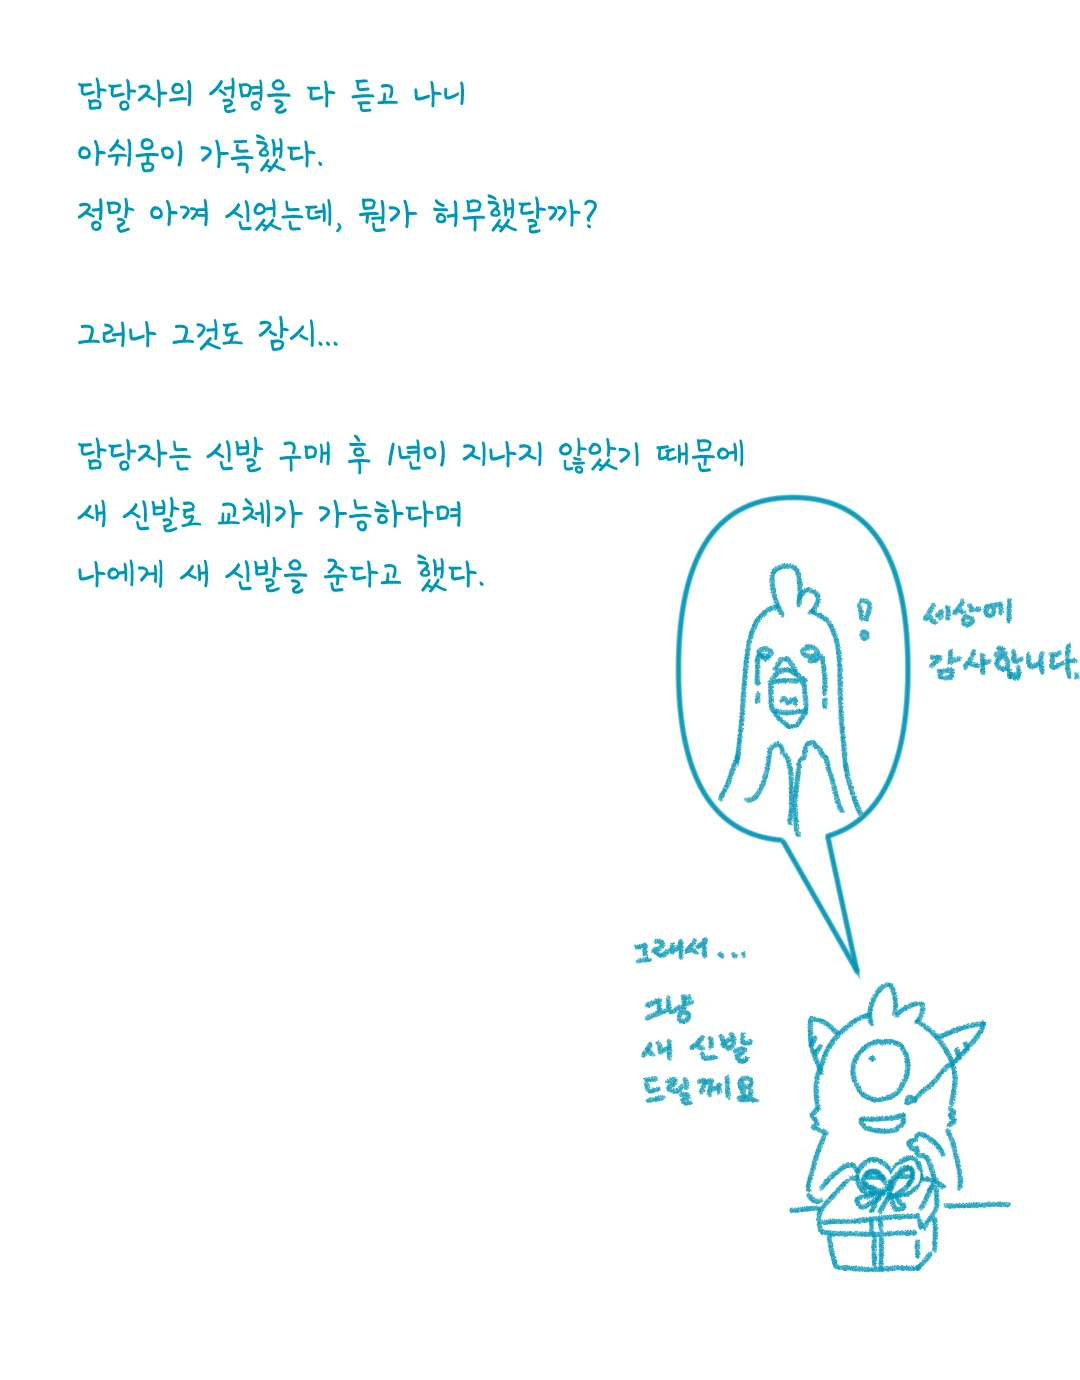 담당자의 설명을 다 듣고 나니
아쉬움이 가득했다.
정말 아껴 신었는데, 뭔가 허무했달까?
그러나 그것도 잠시...
담당자는 신발 구매 후 1년이 지나지 않았기 때문에
새 신발로 교체가 가능하다며
나에게 새 신발을 준다고 했다.
!
세상에
감사합니다.
그래서...
그냥
새 신발
드릴께요